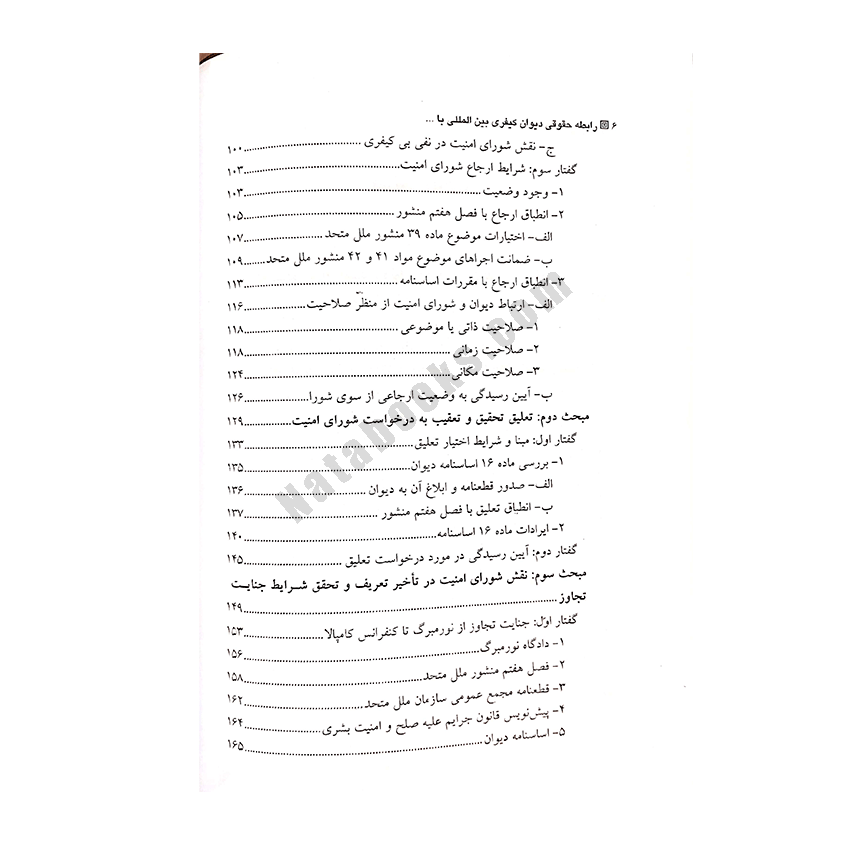 ۶ رابطه حقوقی دیوان کیفری بین المللی با ...
ج- نقش شورای امنیت در نفی بی کیفری ........ ۱۰۰
گفتار سوم: شرایط ارجاع شورای امنیت ........ ۱۰۳
۱- وجود وضعیت ........ ۱۰۳
۲- انطباق ارجاع با فصل هفتم منشور ........ ۱۰۵
الف- اختیارات موضوع ماده ۳۹ منشور ملل متحد ........ ۱۰۷
ب- ضمانت اجراهای موضوع مواد ۴۱ و ۴۲ منشور ملل متحد ........ ۱۰۹
۳- انطباق ارجاع با مقررات اساسنامه ........ ۱۱۳
الف- ارتباط دیوان و شورای امنیت از منظر صلاحیت ........ ۱۱۶
۱- صلاحیت ذاتی یا موضوعی ........ ۱۱۸
۲- صلاحیت زمانی ........ ۱۱۸
۳- صلاحیت مکانی ........ ۱۲۴
ب- آیین رسیدگی به وضعیت ارجاعی از سوی شورا ........ ۱۲۶
مبحث دوم: تعلیق تحقیق و تعقیب به درخواست شورای امنیت ........ ۱۲۹
گفتار اول: مبنا و شرایط اختیار تعلیق ........ ۱۳۳
۱- بررسی ماده ۱۶ اساسنامه دیوان ........ ۱۳۵
الف- صدور قطعنامه و ابلاغ آن به دیوان ........ ۱۳۶
ب- انطباق تعلیق با فصل هفتم منشور ........ ۱۳۷
۲- ایرادات ماده ۱۶ اساسنامه ........ ۱۴۰
گفتار دوم: آیین رسیدگی در مورد درخواست تعلیق ........ ۱۴۵
مبحث سوم: نقش شورای امنیت در تأخیر تعریف و تحقق شرایط جنایت
تجاوز ........ ۱۴۹
گفتار اول: جنایت تجاوز از نورمبرگ تا کنفرانس کامپالا ........ ۱۵۳
۱- دادگاه نورمبرگ ........ ۱۵۶
۲- فصل هفتم منشور ملل متحد ........ ۱۵۸
۳- قطعنامه مجمع عمومی سازمان ملل متحد ........ ۱۶۲
۴- پیش‌نویس قانون جرایم علیه صلح و امنیت بشری ........ ۱۶۴
۵- اساسنامه دیوان ........ ۱۶۵
Natabooks.com